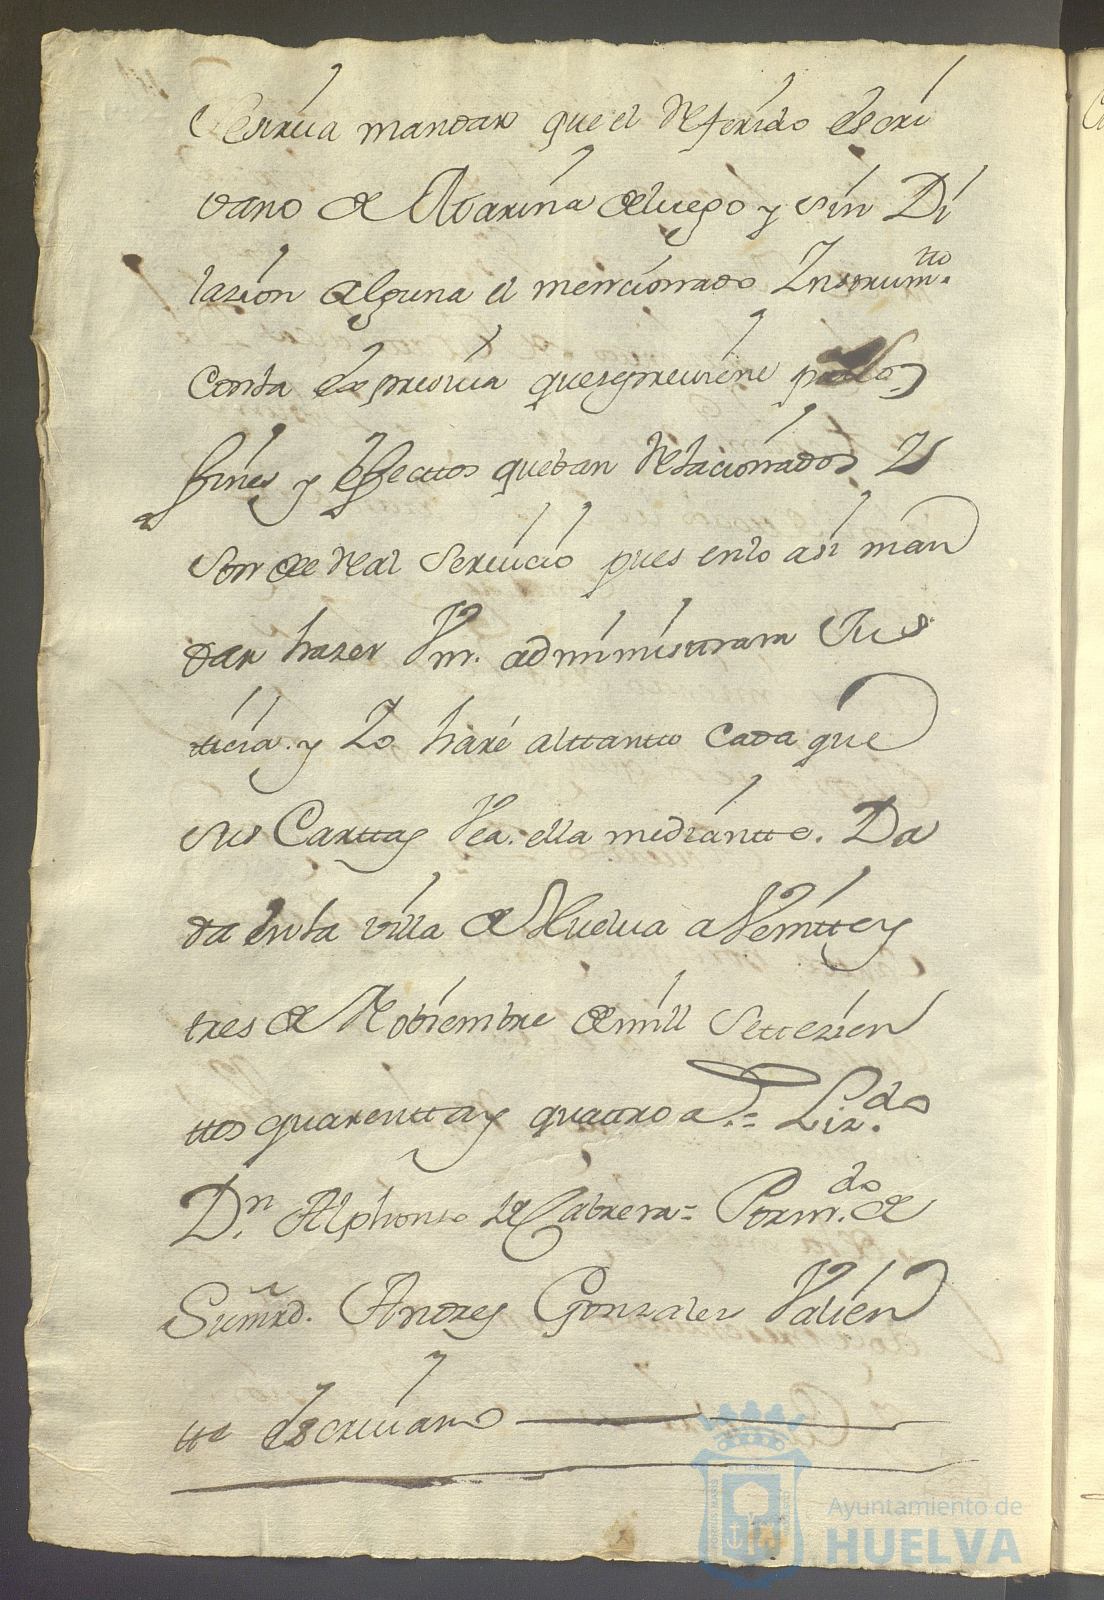 escriua mandar que el Referido escri
vano de Marina de luego y sin Di
lazion alguna el mencionado Instrum.tto
con la expresiua que se preuiene para los
fines y effecttos que ban Relacionados Y
son de Real Seruicio pues en lo asi man
dar hazer Vm. administrara Jus
tticia. y Yo haré al ttantto cada que
sus Carttas Vea. ella mediantte. Da
da en la villa de Huelua a Veintte y
tres de Nobiembre de mill Settezien
ttos quarentta y quattro a.s= Liz.do
D.n Alphonso de Cabrera= Por m.do de
Su mrd. Andres Gonzalez Valien
tte escriuano
Ayuntamiento de
HUELVA